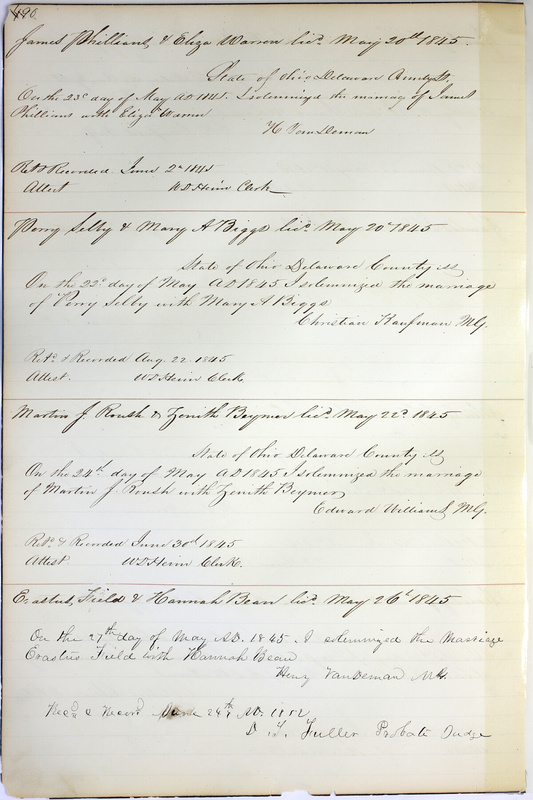 490.
James Philliams & Eliza Warren licd. May 20th 1845.
State of Ohio Delaware County Ss
On the 23d day of May AD 1845. I solemnized the marriage of James
Philliams with Eliza Warren
H Van Deman
Retd & Recorded June 2d 1845
Attest W D Heim Clerk
Perry Selby & Mary A Biggs licd. May 20th 1845
State of Ohio Delaware County ss
On the 22d day of May AD 1845 I solemnized the marriage
of Perry Selby with Mary A Biggs
Christian Kaufman MG.
Retd & Recorded Aug. 22 1845
Attest. W D Heim Clerk
Martin J. Roush & Zenith Beymer licd. May 22d 1845
State of Ohio Delaware County ss
On the 24th day of May AD 1845 I solemnized the marriage
of Martin J. Roush with Zenith Beymer
Edward Williams MG.
Retd & Recorded June 30th 1845
Attest. W D Heim Clerk.
Erastus Field & Hannah Bean licd. May 26th 1845
On the 27th day of May AD. 1845 I solemnized the Marriage
Erastus Field with Hannah Bean
Henry VanDeman MG.
Recd & Record 24th AD. 1852
D. T. Fuller Probate Judge